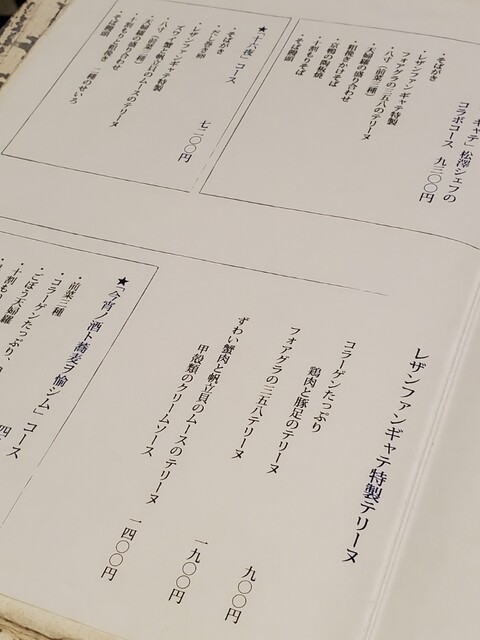 キャテ」松澤シェフの
コラボコース 九三〇〇円
・そばがき
・レザンファンギャテ特製
フォアグラの三五八のテリーヌ
・八寸(前菜三種)
・天婦羅の盛り合わせ
・粗挽きかけそば
・京鴨の陶板焼
・十割もりそば
・そば饅頭
コース 七二〇〇円
・そばがき
・だし巻き卵
・レザンファンギャテ特製
ずわい蟹と帆立貝のムースのテリーヌ
・八寸(前菜三種)
・天婦羅の盛り合わせ
・そば饅頭
レザンファンギャテ特製テリーヌ
コラーゲンたっぷり
鶏肉と豚足のテリーヌ 九〇〇円
フォアグラの三五八テリーヌ 一九〇〇円
ずわい蟹肉と帆立貝のムースのテリーヌ
甲殻類のクリームソース 一四〇〇円
★「今宵ノ酒ト蕎麦ヲ愉シム」コース
・前菜三種
・コラーゲンたっぷり、
・ごぼう天婦羅